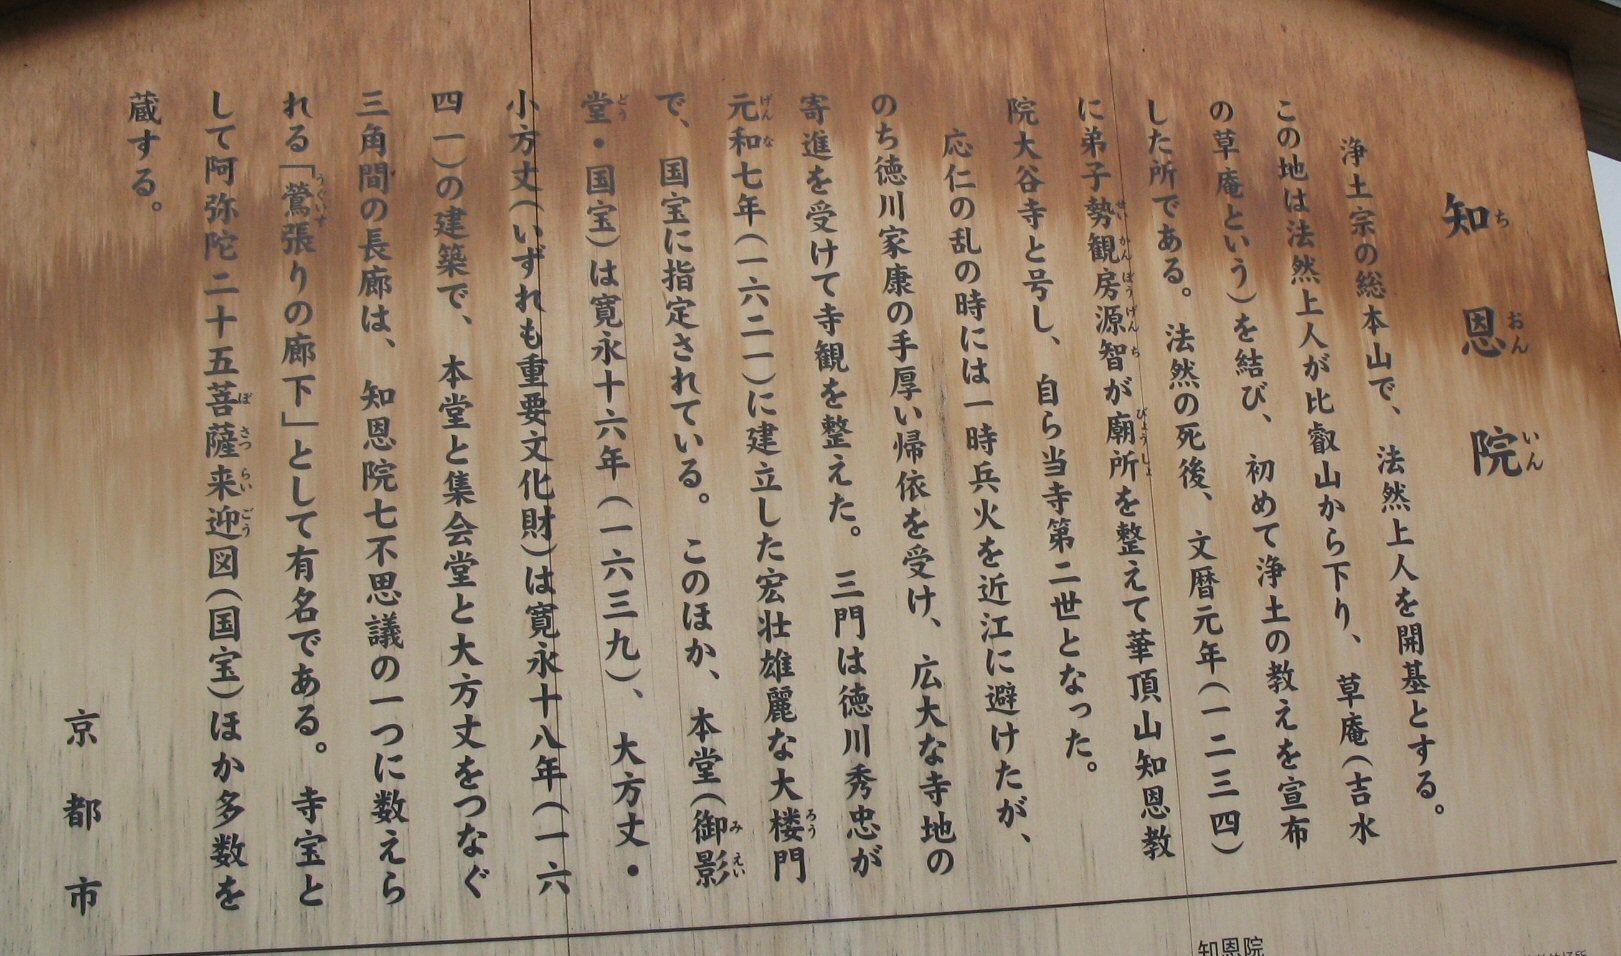 知恩院
浄土宗の総本山で、法然上人を開基とする。
この地は法然上人が比叡山から下り、草庵(吉水
の草庵という)を結び、初めて浄土の教えを宣布
した所である。法然の死後、文暦元年(一二三四)
に弟子勢観房源智が廟所を整えて華頂山知恩教
院大谷寺と号し、自ら当寺第二世となった。
応仁の乱の時には一時兵火を近江に避けたが、
のち徳川家康の手厚い帰依を受け、広大な寺地の
寄進を受けて寺観を整えた。三門は徳川秀忠が
元和七年(一六二一)に建立した宏壮雄麗な大楼門
で、国宝に指定されている。このほか、本堂(御影
堂・国宝)は寛永十六年(一六三九)、大方丈・
小方丈(いずれも重要文化財)は寛永十八年(一六
四一)の建築で、本堂と集会堂と大方丈をつなぐ
三角間の長廊は、知恩院七不思議の一つに数えら
れる「鶯張りの廊下」として有名である。寺宝と
して阿弥陀二十五菩薩来迎図(国宝)ほか多数を
蔵する。
京都市
知恩院